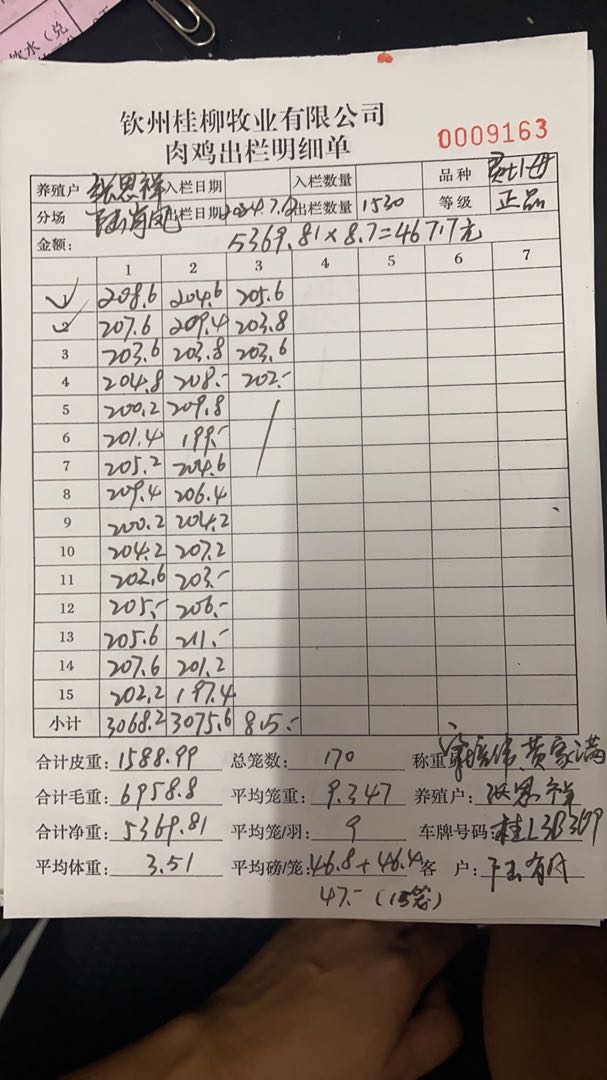 饮水(兑
钦州桂柳牧业有限公司
肉鸡出栏明细单
0009163
养殖户 张恩祥 入栏日期 入栏数量 品种
分场 出栏日期 2024.7.12 出栏数量 1530 等级 正品
金额: 5369.81×8.7=46717元
1 2 3 4 5 6 7
1 208.6 204.6 205.6
2 207.6 209.4 203.8
3 203.6 203.8 203.6
4 204.8 208.- 202.-
5 200.2 209.8
6 201.4 199.-
7 205.2 204.6
8 209.4 206.4
9 200.2 204.2
10 204.2 207.2
11 202.6 203.-
12 205.- 206.-
13 205.6 211.-
14 207.6 201.2
15 202.2 197.4
小计 3068.2 3075.6 815.-
合计皮重: 1588.99 总笼数: 170 称重 黄家满
合计毛重: 6958.8 平均笼重: 9.347 养殖户: 张恩祥
合计净重: 5369.81 平均笼/羽: 9 车牌号码: 桂L3B369
平均体重: 3.51 平均磅/笼: 46.8+46.4 客 户:
47.- (15笼)